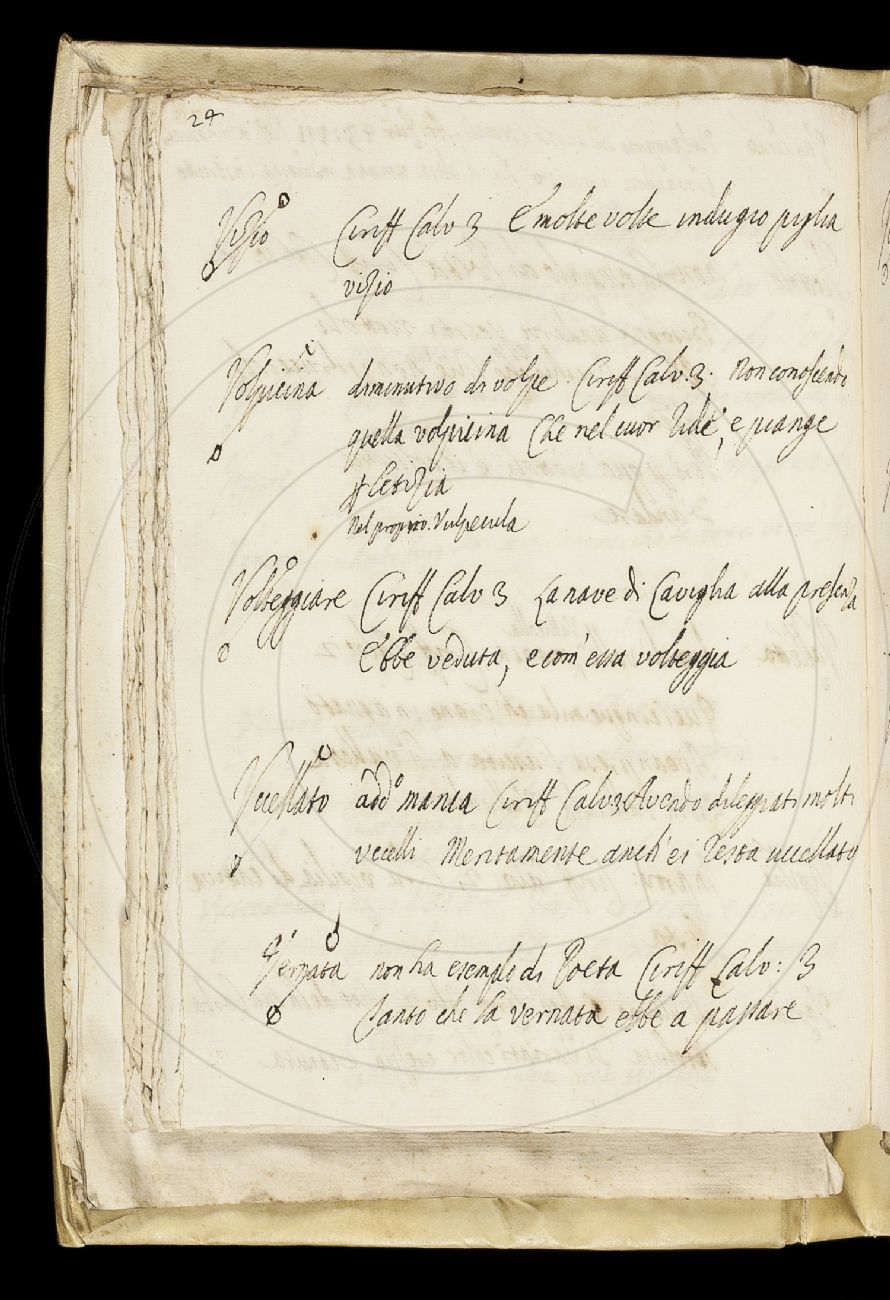 24
Vizio Ciriff Calv 3 E molte volte indugio piglia
vizio
Volpicina diminutivo di volpe. Ciriff Calv. 3. Non conoscendo
quella volpicina Che nel cuor ride, e piange
letizia
Nel proprio. Vulpecula
Volteggiare Ciriff Calv 3 La nave di Caviglia alla presenza
Ebbe veduta, e com' essa volteggia
Vccellato add.o manca Ciriff Calv 3 Avendo dileggiati molti
vccelli Meritamente anch' ei resta uccellato
Vernata non ha esemplo di Poeta Ciriff Calv: 3
Tanto che la vernata ebbe a passare